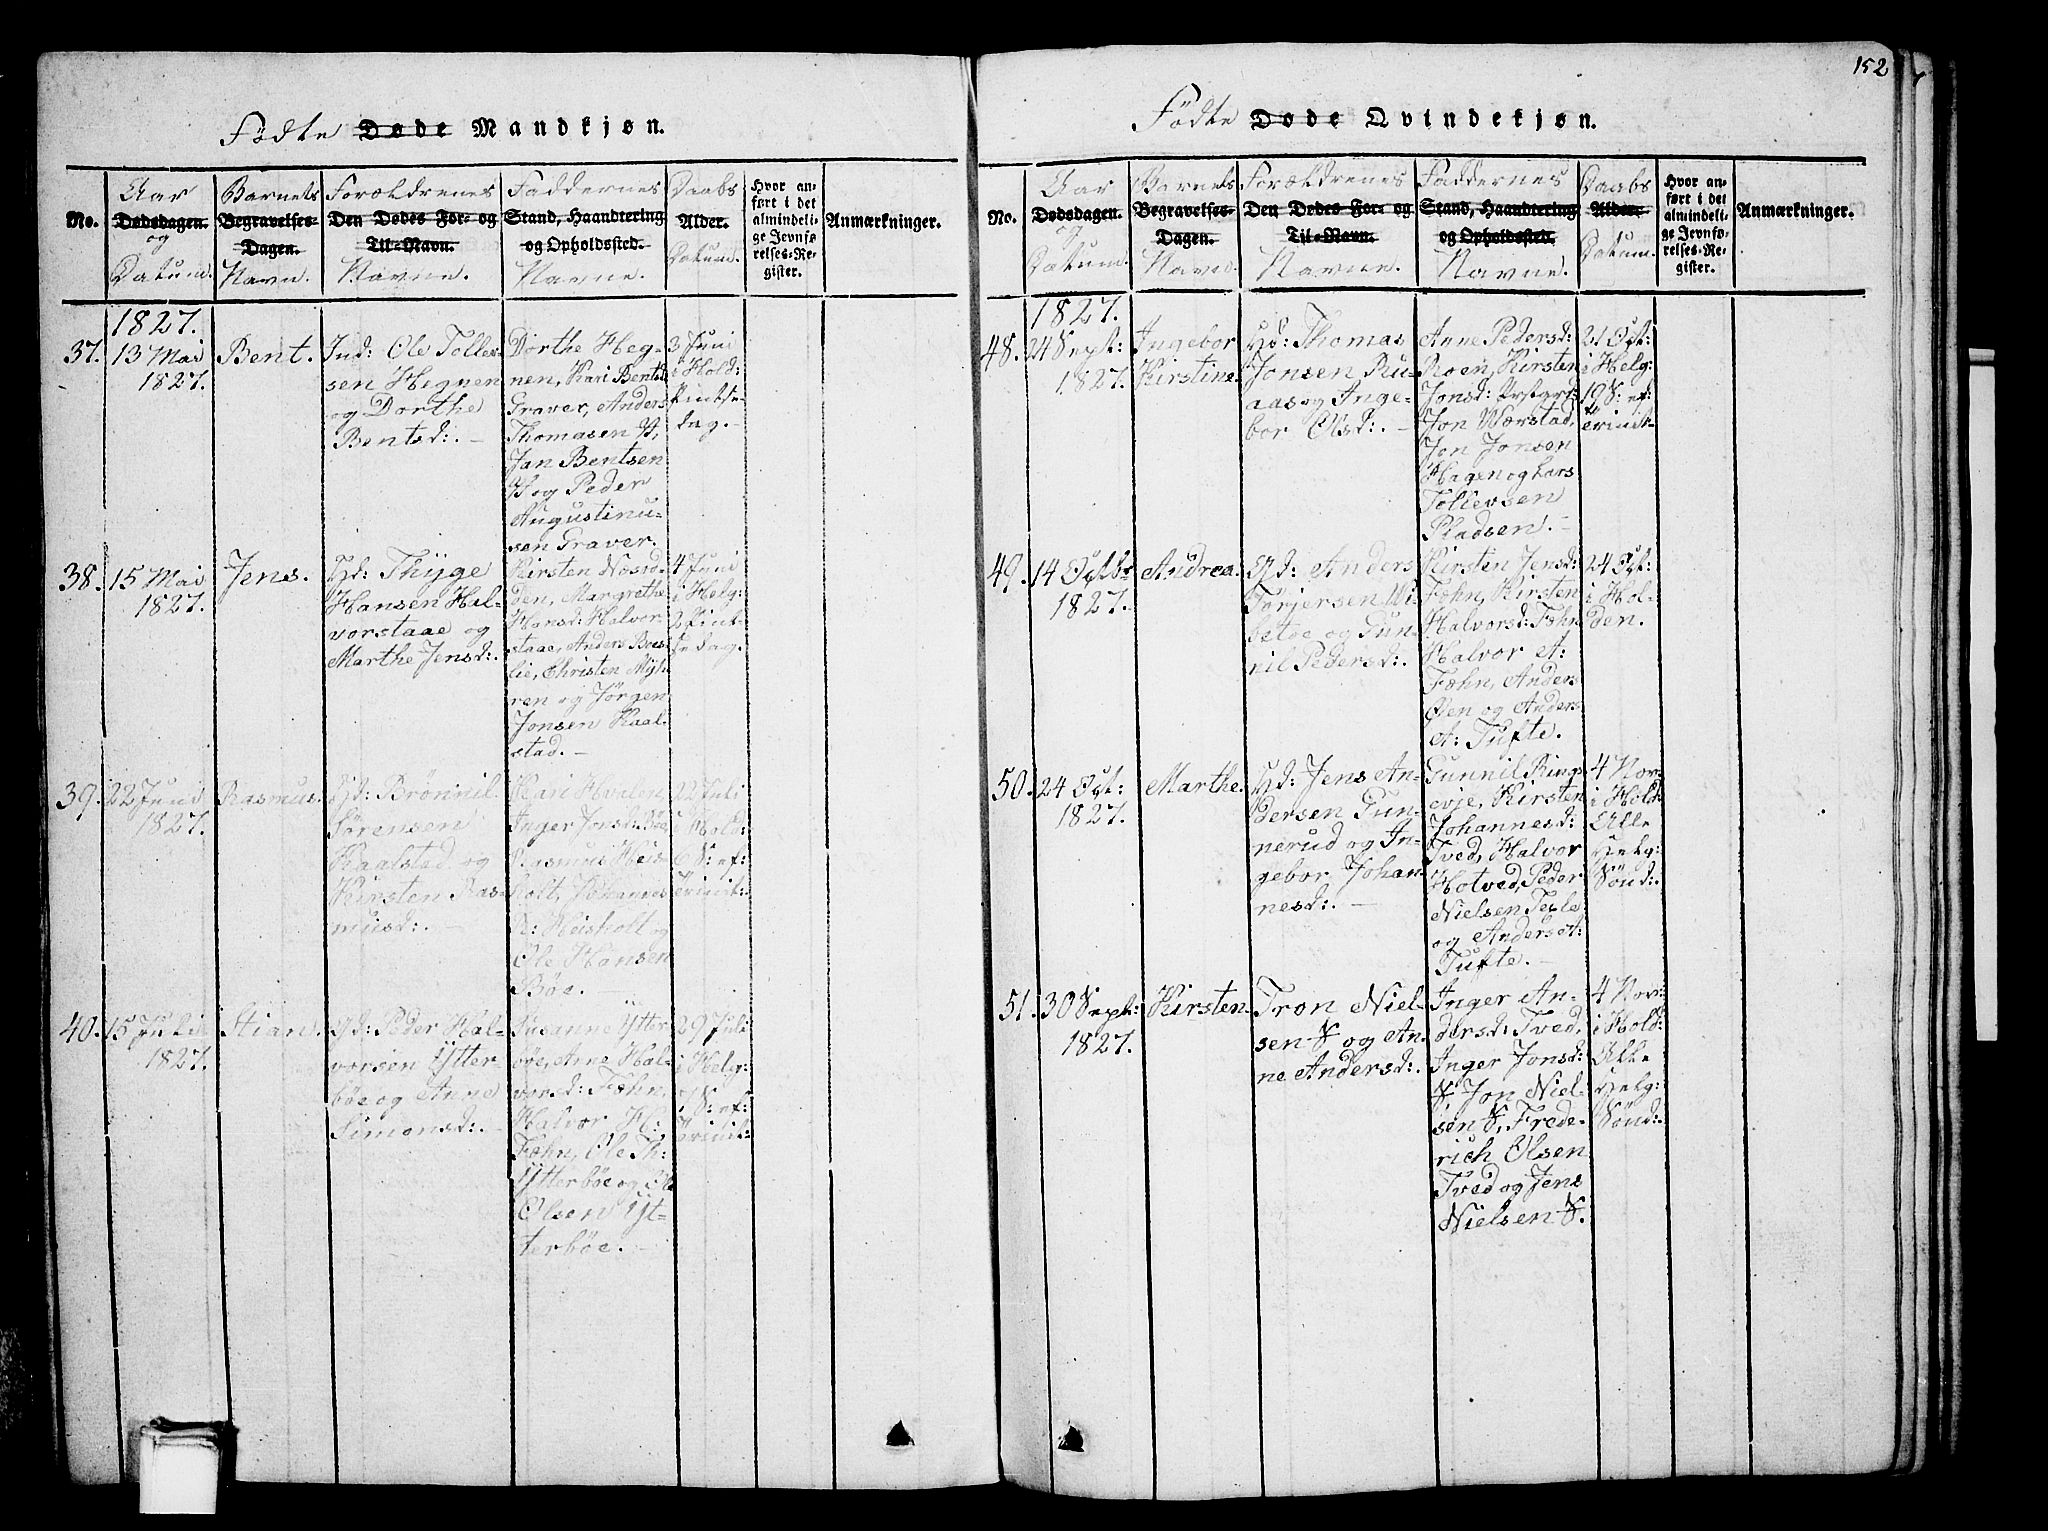 152
Födte Døde Mandkjøn.
No.
Aar
Dødsdagen.
og
Datum.
Barnets
Begravelses-
Dagen.
Navn.
Forældrenes
Den Dødes For- og
Til-Navn.
Navne.
Faddernes
Stand, Haandtering
og Opholdssted.
Navne.
Daabs
Alder.
Datum.
Hvor an-
ført i det
almindeli-
ge Jevnfø-
relses-Re-
gister.
Anmærkninger.
1827.
37.
13 Mai
1827.
Bent.
Ind: Ole Tollev-
sen Hegnen
og Dorthe
Bentsd:.
Dorthe Heg-
nen, Kari Bentsd:
Graver, Anders
Thomasen
Jan Bentsen
og Peder
Augustinu-
sen Graver.
3 Juni
i Hold:
Pintse-
dag.
38.
15 Mai
1827.
Jens.
Gd: Thyge
Hansen Hal-
vorstaae og
Marthe Jensd:.
Kirsten Næsrø-
den, Margrethe
Hansd: Halvor-
staae, Anders Boes-
lie, Christen Myh-
ren og Jørgen
Jonsen Kaal-
stad.
4 Juni
i Helg:
2 Pint-
sedag.
39.
22 Juni
1827.
Rasmus.
Gd: Brønnil
Sørensen
Kaalstad og
Kirsten Ras-
musd:.
Kari Hvalen
Inger Jonsd: Bøe
Rasmus Heis-
holt, Johannes
R: Heisholt og
Ole Hansen
Bøe.
22 Juli
i Hold:
6 S: ef:
Trinit:
40.
15 Juli
1827.
Stian.
Gd: Peder Hal-
vorsen Ytter-
bøe og Anne
Simonsd:.
Susanne Ytter-
bøe, Anne Hal-
vorsd: Fæhn,
Halvor H:
Fæhn, Ole Th:
Ytterbøe og Ole
Olsen Yt-
terbøe.
29 Juli
i Helg:
7 S: ef:
Trinit:
Födte Døde Qvindekjøn.
No.
Aar
Dødsdagen.
og
Datum.
Barnets
Begravelses-
Dagen.
Navn.
Forældrenes
Den Dødes For- og
Til-Navn.
Navne.
Faddernes
Stand, Haandtering
og Opholdssted.
Navne.
Daabs
Alder.
Datum.
Hvor an-
ført i det
almindeli-
ge Jevnfø-
relses-Re-
gister.
Anmærkninger.
1827.
48.
24 Sept:
1827.
Ingebor
Kirstine.
Gd: Thomas
Jonsen Ru-
aas og Inge-
bor Olsd:.
Anne Pedersd:
Roen, Kirsten
Jonsd:
Jon Værstad,
Jon Jonsen
Hagen og Lars
Tollevsen
Pladsen.
21 Oct:
i Helg:
19 S: ef:
Trinit:
49.
14 Octbr
1827.
Andrea.
Gd: Anders
Torjersen Wi-
betoe og Gun-
nil Pedersd:.
Kirsten Jensd:
Fæhn, Kirsten
Halvorsd: Fæhn
Halvor A:
Fæhn, Anders
Øen og Anders
A: Tufte.
24 Oct:
i Hol-
den.
50.
24 Oct:
1827.
Marthe.
Gd: Jens An-
dersen Gun-
nerud og In-
gebor Johan-
nesd:.
Gunnil Rings-
evje, Kirsten
Johannesd:
Tved, Halvor
Hotved, Peder
Nielsen Teile
og Anders A:
Tufte.
4 Nov:
i Hold:
Alle
Helg:
Sönd:.
51.
30 Sept:
1827.
Kirsten.
Tron Niel-
sen S og An-
ne Andersd:.
Inger An-
dersd: Tved,
Inger Jonsd:
S, Jon Niel-
sen S, Frede-
rich Olsen
Tved og Jens
Nielsen S.
4 Nov:
i Hold:
Alle
Helg:
Sönd:.